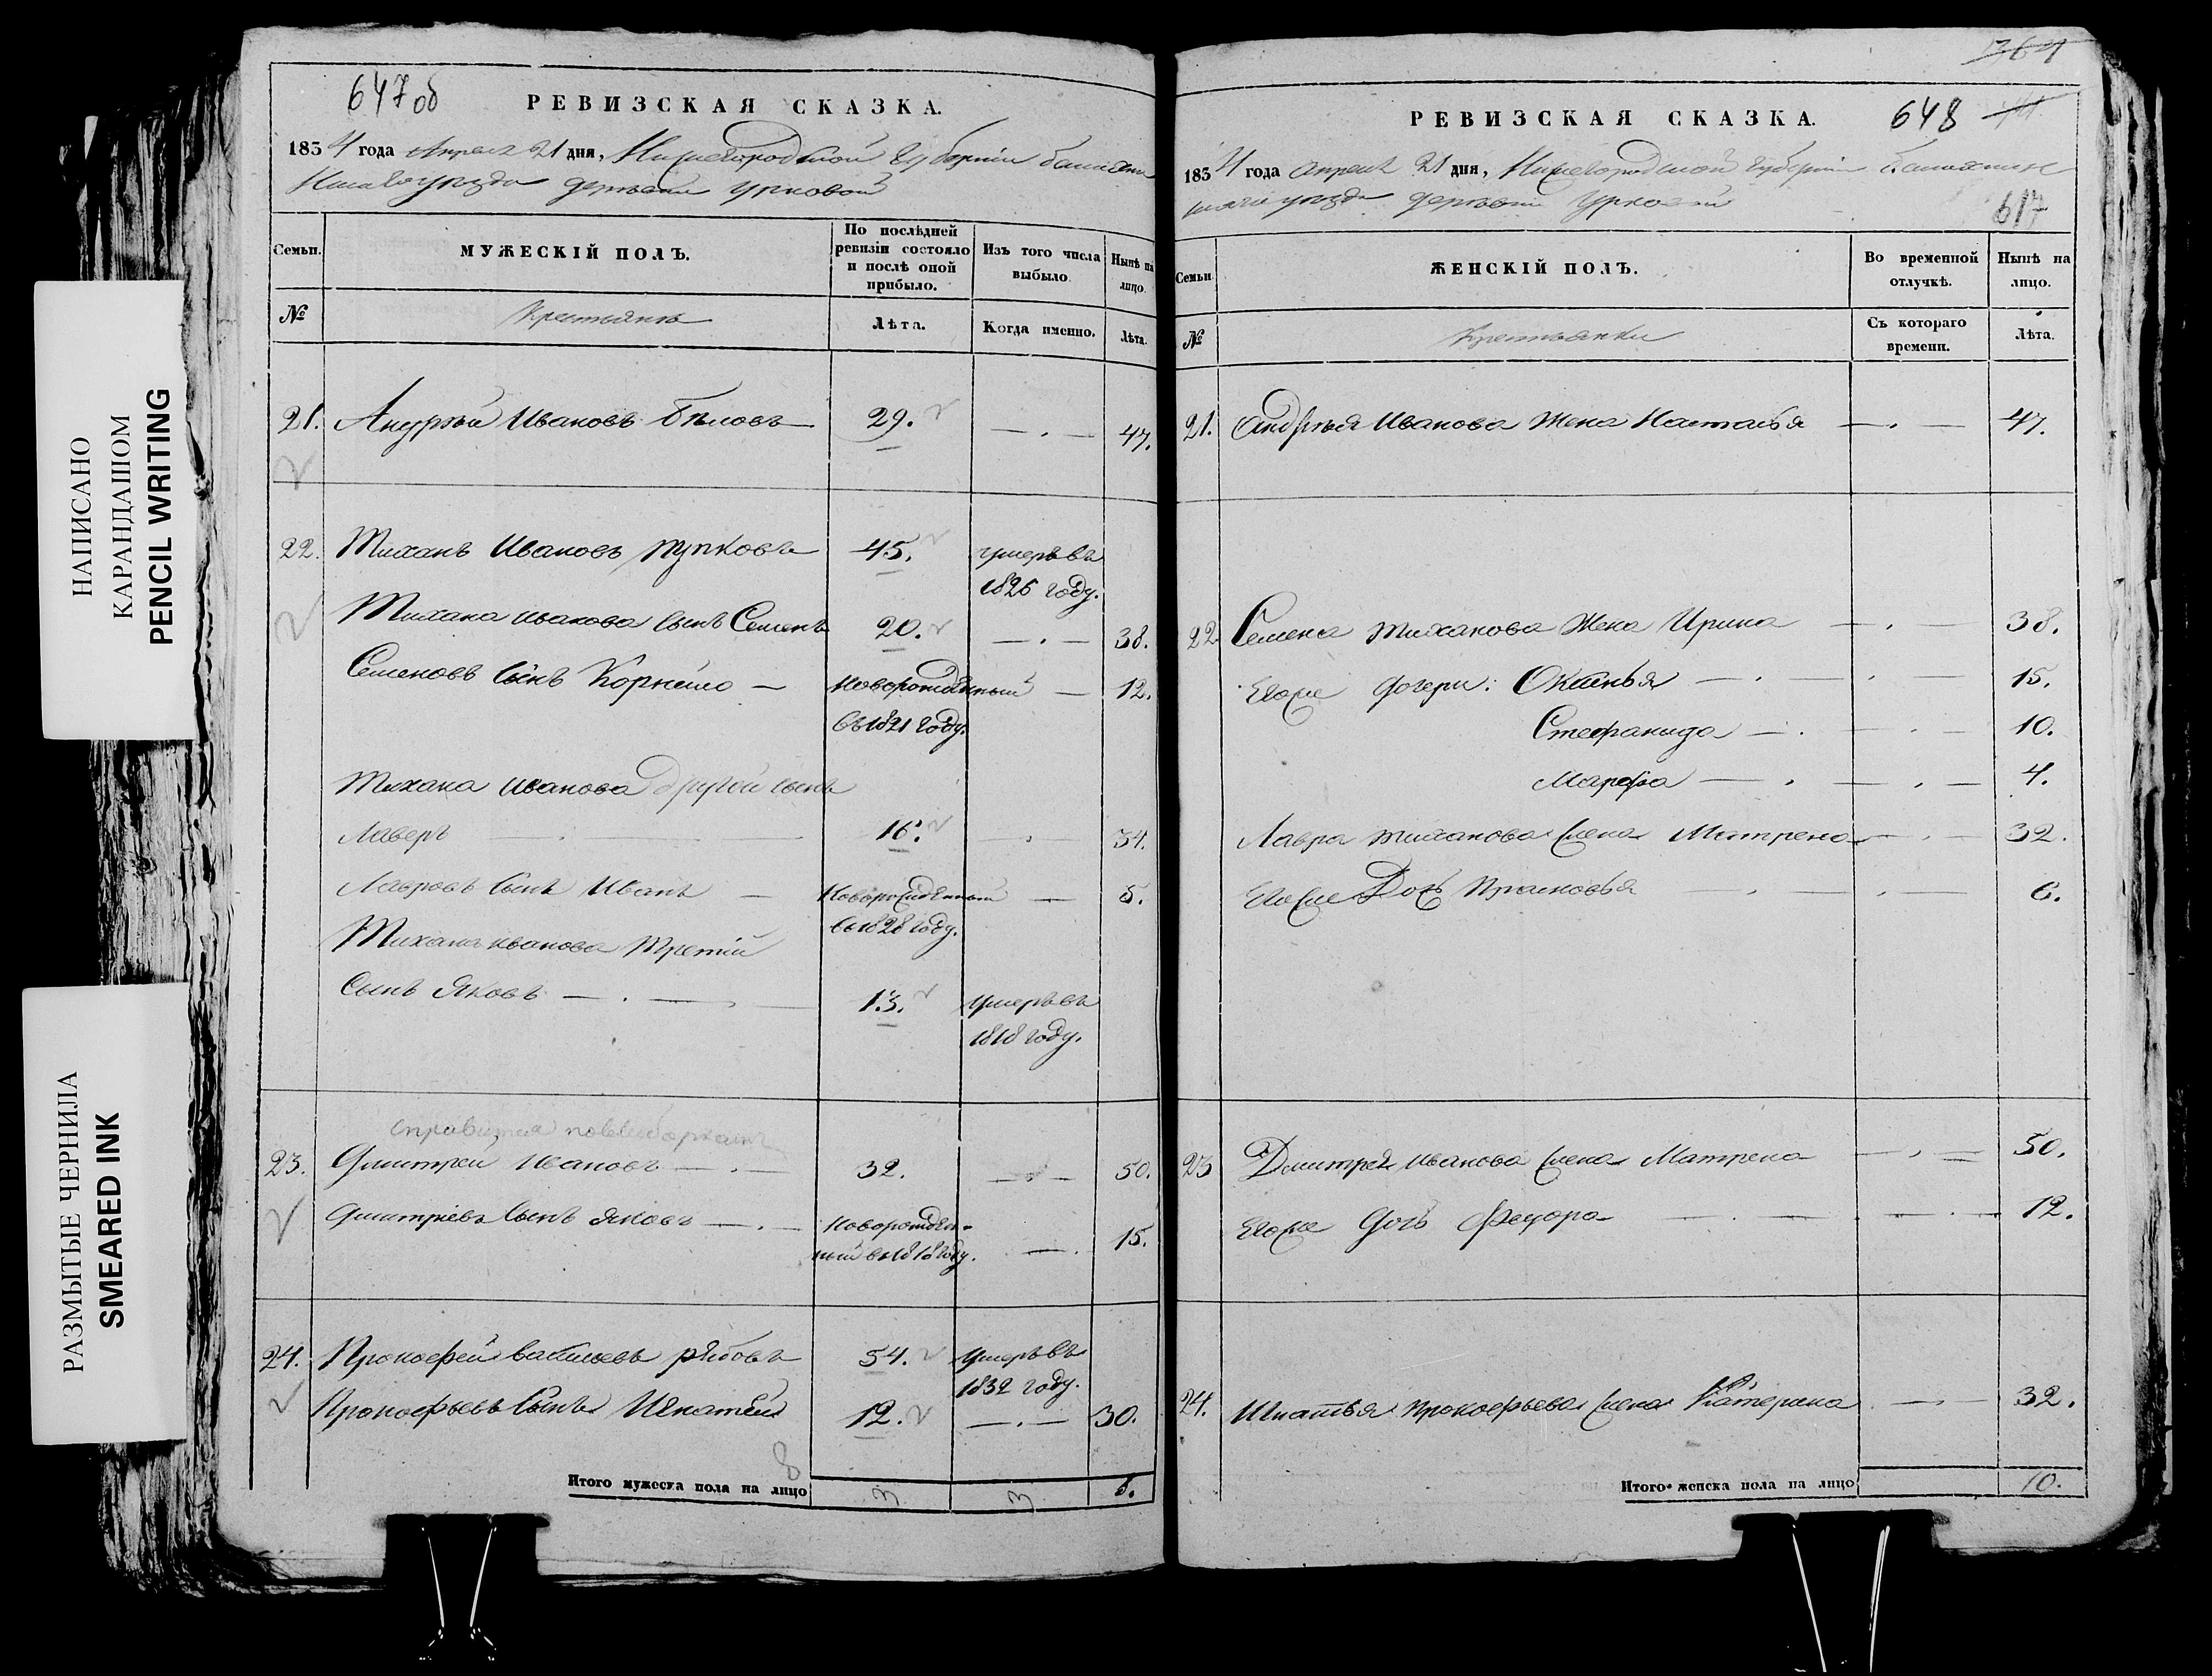 НАПИСАНО
КАРАНДАШОМ
PENCIL WRITING
РАЗМЫТЫЕ ЧЕРНИЛА
SMEARED INK
647 об
РЕВИЗСКАЯ СКАЗКА.
1834 года Апреля 21 дня, Нижегородской Губернии балахни
нскаго уѣзда деревни Урковой
Семьи.
МУЖЕСКІЙ ПОЛЪ.
По послѣдней ревизіи состояло и послѣ оной прибыло.
Изъ того числа выбыло.
Нынѣ на лицо.
№
Крестьянъ
Лѣта.
Когда именно.
Лѣта.
21. Андрѣй Ивановъ Бѣловъ 29. 47.
22. Тиханъ Ивановъ 45. умеръ въ
1826 году.
Тихана иванова сынъ Семенъ 20. 38.
Семеновъ сынъ Корнило новорожденный 12.
въ 1821 году.
Тихана Иванова другой сынъ
Лаверъ 16. 34.
Лавровъ сынъ Иванъ Новорожденный 5.
въ 1828 году.
Тихана иванова Третій
Сынъ Яковъ 13. умеръ въ
1818 году.
23. Дмитреи Ивановъ 32. 50.
Дмитріевъ сынъ Яковъ новорожден-
ный въ 1818 году. 15.
24. Прокофей васильевъ рябовъ 54. умеръ въ
1832 году.
Прокофьевъ Сынъ Игнатей 12. 30.
8
Итого мужеска пола на лицо 3 3 6.
1364
РЕВИЗСКАЯ СКАЗКА. 648
1834 года апреля 21 дня, Нижегородской губерніи балахнин
скаго уѣзда деревни Урковой
617
Семьи.
ЖЕНСКІЙ ПОЛЪ.
Во временной отлучкѣ.
Нынѣ на лицо.
№
Крестьянки
Съ котораго времени.
Лѣта.
21. Андрѣя Иванова Жена Настасья 47.
22. Семена тиханова Жена Ирина 38.
Егоже дочери: Оксинья 15.
Стефанида 10.
Марфа 4.
Лавра тиханова жена Матрена 32.
Егоже Дочь Прасковья 6.
23 Дмитрея иванова жена Матрена 50.
Егоже дочь Федора 12.
24. Игнатья прокофьева жена Катерина 32.
Итого женска пола на лицо 10.